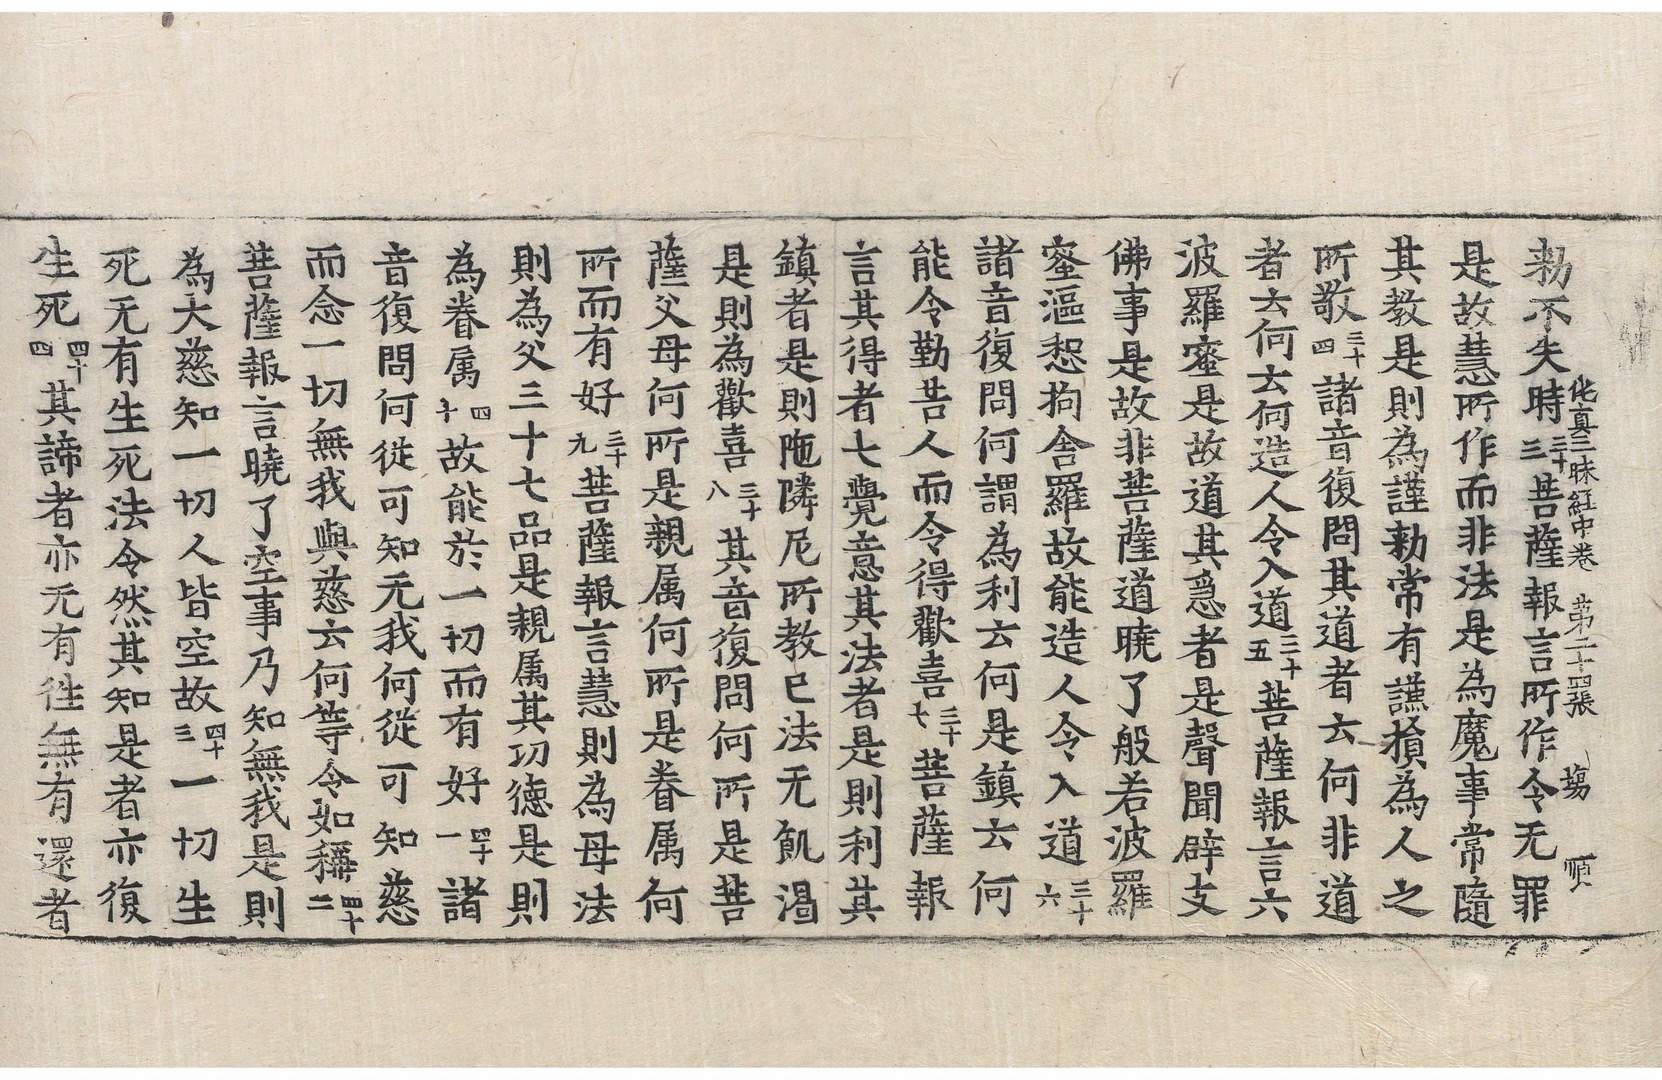 佗真三昧經中卷 第二十四張 塲 順
勑不失時三十三菩薩報言所作令无罪
是故慧所作而非法是為魔事常隨
其教是則為謹勑常有讌損為人之
所敬三十四諸音復問其道者云何非道
者云何云何造人令入道三十五菩薩報言六
波羅蜜是故道其惡者是聲聞辟支
佛事是故非菩薩道曉了般若波羅
蜜漚惒拘舍羅故能造人令入道三十六
諸音復問何謂為利云何是鎮云何
能令勤苦人而令得歡喜三十七菩薩報
言其得者七覺意其法者是則利其
鎮者是則陁隣尼所教已法无飢渴
是則為歡喜三十八其音復問何所是菩
薩父母何所是親属何所是眷属何
所而有好三十九菩薩報言慧則為母法
則為父三十七品是親属其功德是則
為眷属四十故能於一切而有好四十一諸
音復問何從可知无我何從可知慈
而念一切無我與慈云何等令如稱四十二
菩薩報言曉了空事乃知無我是則
為大慈知一切人皆空故四十三一切生
死无有生死法令然其知是者亦復
生死四十四其諦者亦无有往無有還者